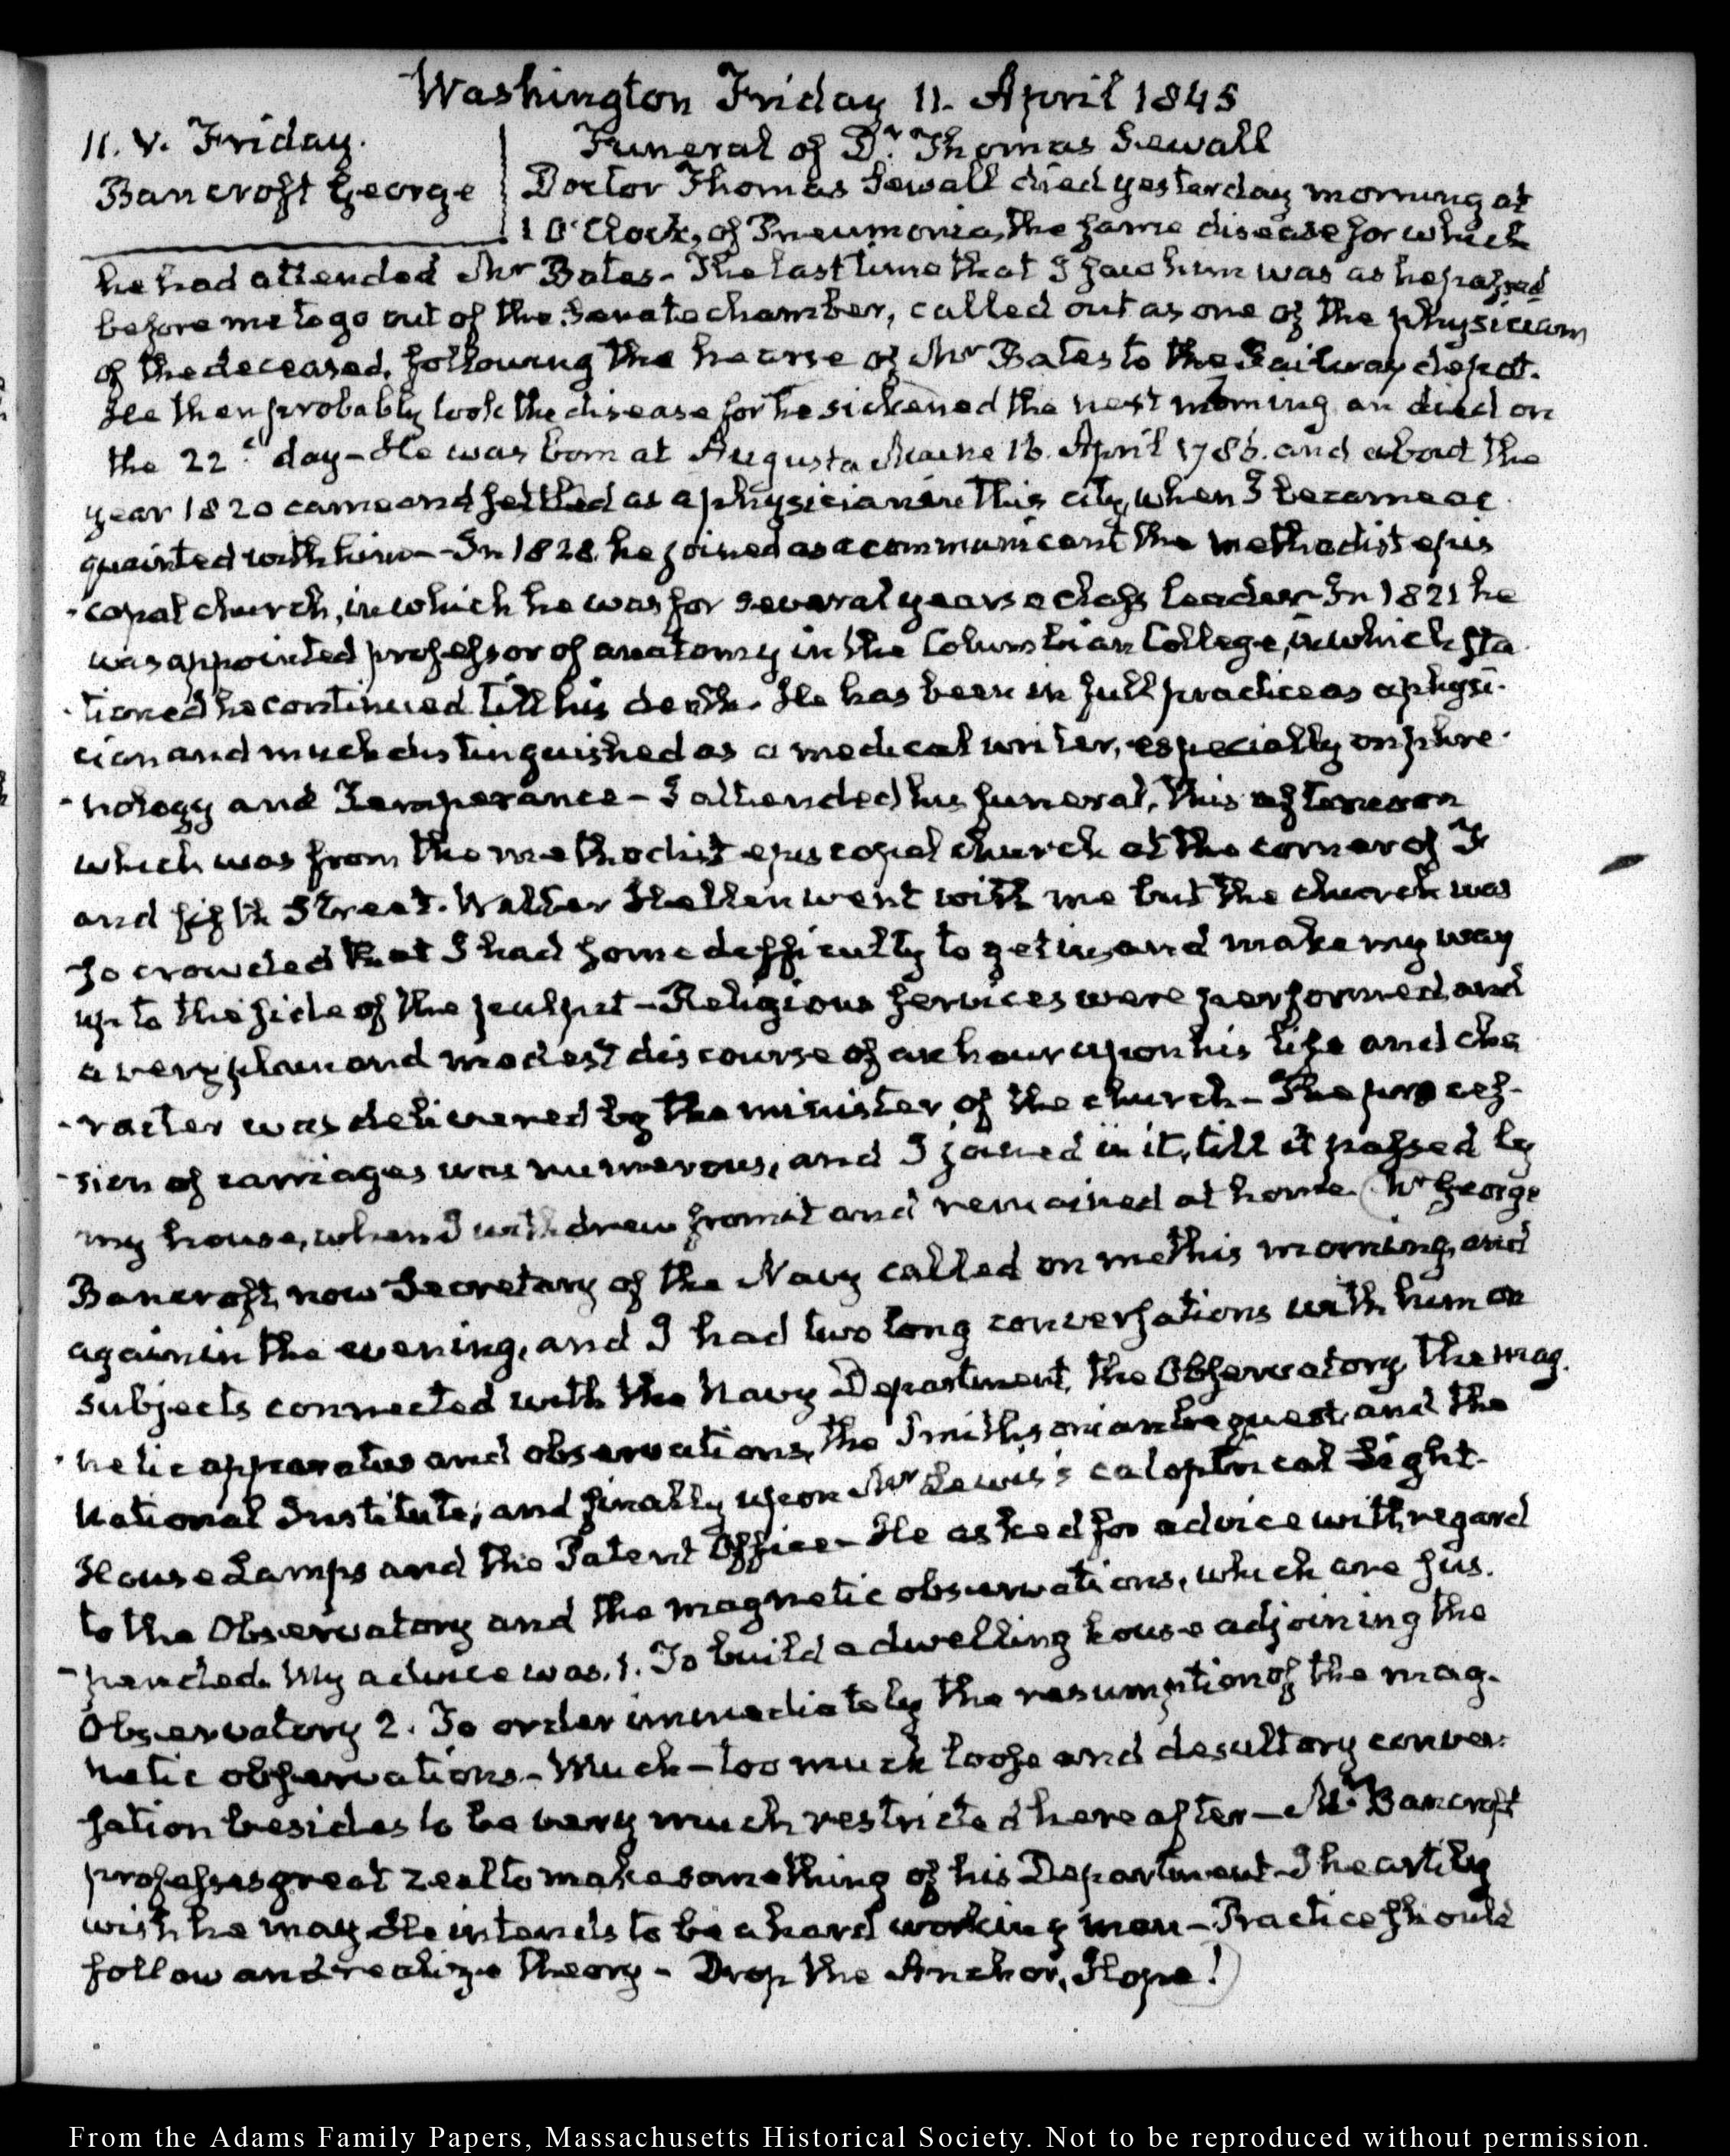 Washington Friday 11. April 1845
11. V. Friday.
Bancroft George
Funeral of Dr. Thomas Sewall
Doctor Thomas Sewall died yesterday morning at
1 O'Clock, of Pneumonia, the same disease for which
he had attended Mr Bates - The last time that I saw him was as he passed
before me to go out of the Senate chamber, called out as one of the physicians
of the deceased, following the hearse of Mr Bates to the Railway depot.
He then probably took the disease for he sickened the next morning an died on
the 22d. day - He was born at Augusta Maine 16. April 1786. and about the
year 1820 came and settled as a physician in this city, when I became ac
quainted with him - In 1828. he joined as a communicant the methodist epis
-copal church, in which he was for several years a class leader - In 1821 he
was appointed professor of anatomy in the Columbian College, in which sta
-tioned he continued till his death. He has been in full practice as a physi-
cian and much distinguished as a medical writer, especially on phre-
-nology and Temperance - I attended his funeral, this afternoon
which was from the methodist episcopal church at the corner of F
and fifth Street. Walter Hellen went with me but the church was
so crowded that I had some difficulty to get in, and make my way
up to the side of the pulpit - Religious services were performed, and
a very plain and modest discourse of an hour upon his life and cha
-racter was delivered by the minister of the church - The proces-
-sion of carriages was numerous, and I joined in it, till it passed by
my house, when I withdrew from it and remained at home. (Mr George
Bancroft, now Secretary of the Navy called on me this morning, and
again in the evening, and I had two long conversations with him on
subjects connected with the Navy Department, the Observatory, the mag.
-netic apparatus and observations, the Smithsonian bequest, and the
National Institute; and finally upon Mr Lewis's catoptrical Light-
House Lamps and the Patent Office - He asked for advice with regard
to the Observatory and the magnetic observations, which are sus.
-pended. My advice was. 1. To build a dwelling house adjoining the
Observatory 2. To order immediately the resumption of the mag-
netic observations - Much - too much loose and desultory conver-
sation besides to be very much restricted hereafter - Mr. Bancroft
professes great zeal to make something of his Department - I heartily
wish he may - He intends to be a hard working man - Practice should
follow and realize theory - Drop the Anchor, Hope!)
From the Adams Family Papers, Massachusetts Historical Society. Not to be reproduced without permission.